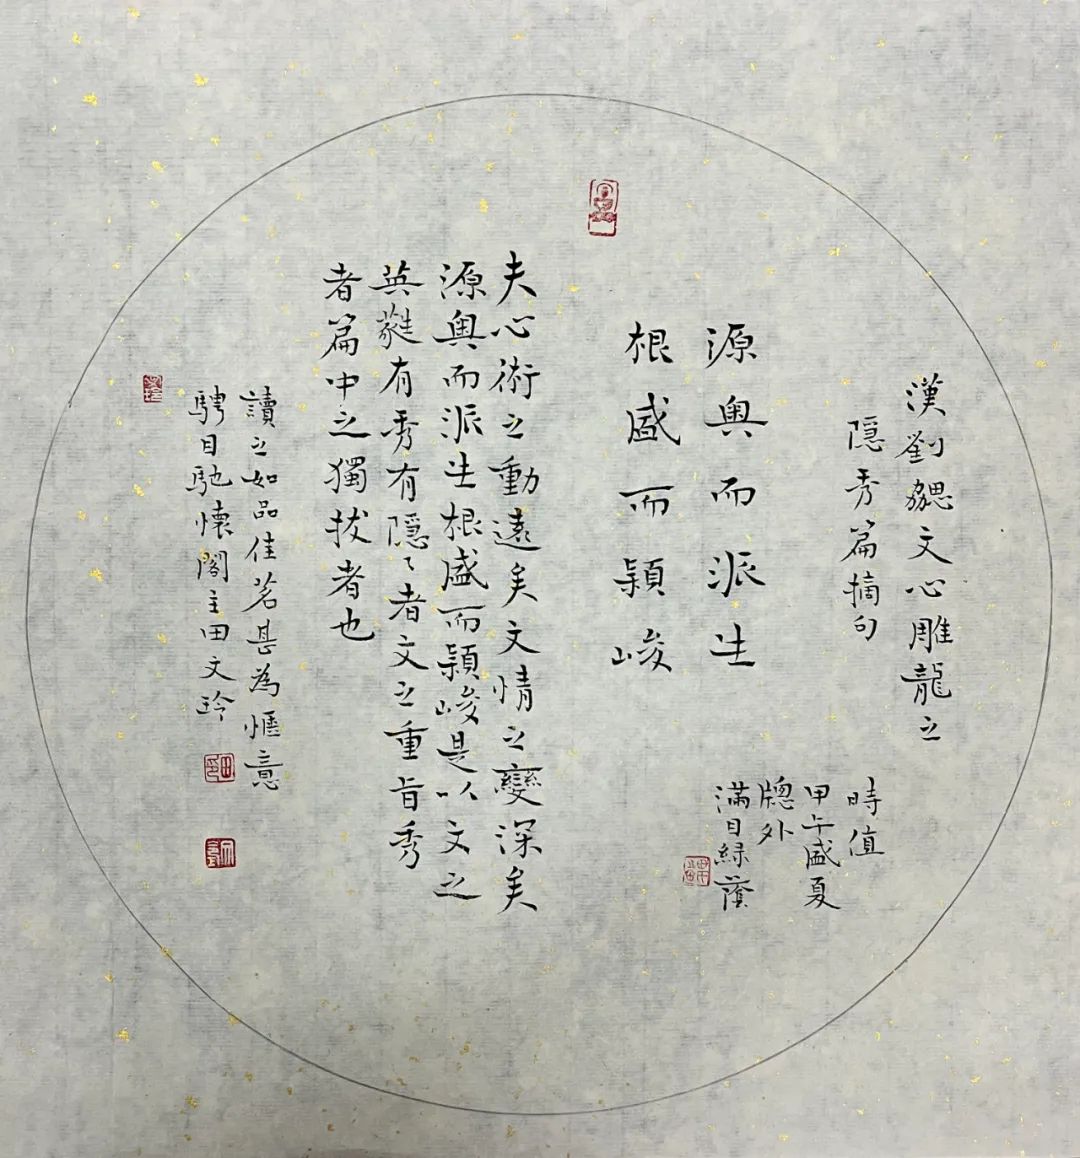 漢劉勰文心雕龍之
隠秀篇摘句
時值
甲午盛夏
牕外
滿目緑蔭
源奥而派生
根盛而穎峻
夫心術之動遠矣文情之變深矣
源奥而派生根盛而穎峻是以文之
英蕤有秀有隠々者文之重旨秀
者篇中之獨拔者也
讀之如品佳茗甚為愜意
騁目馳懷閣主田文玲